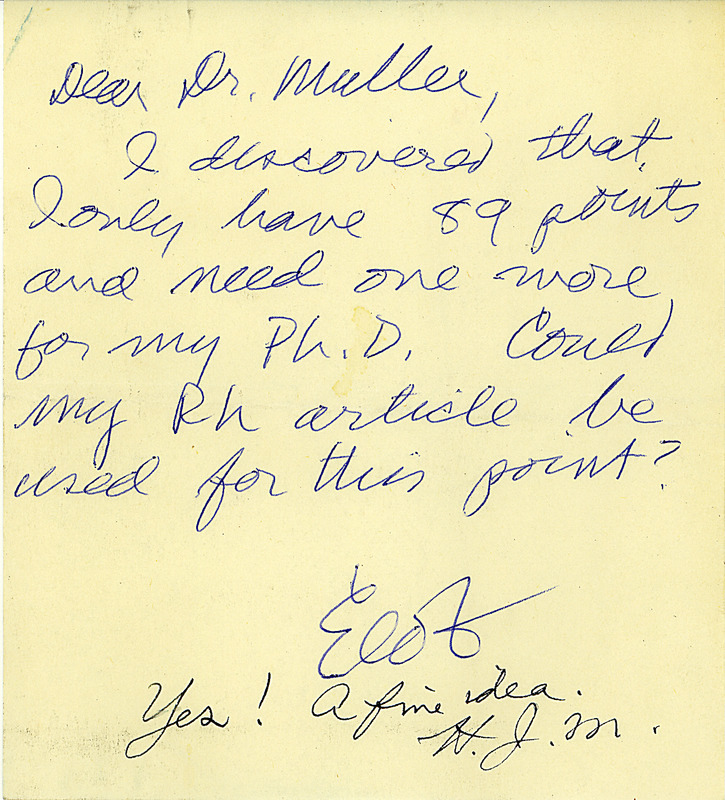 Dear Dr. Muller,
I discovered that
I only have 89 points
and need one more
for my Ph.D. Could
my Rh article be
used for this point?
Elof
Yes! A fine idea.
H. J. M.